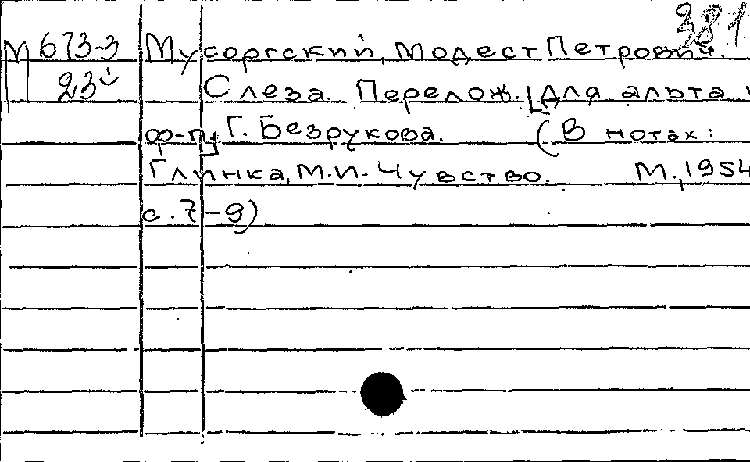 381
М 673-3 Мусоргский, Модест Петрович.
23 Слеза. Перелож. [для альта и
ф-п] Г. Безрукова. (В нотах:
Глинка, М.И. Чувство. М., 1954
с. 7-9)